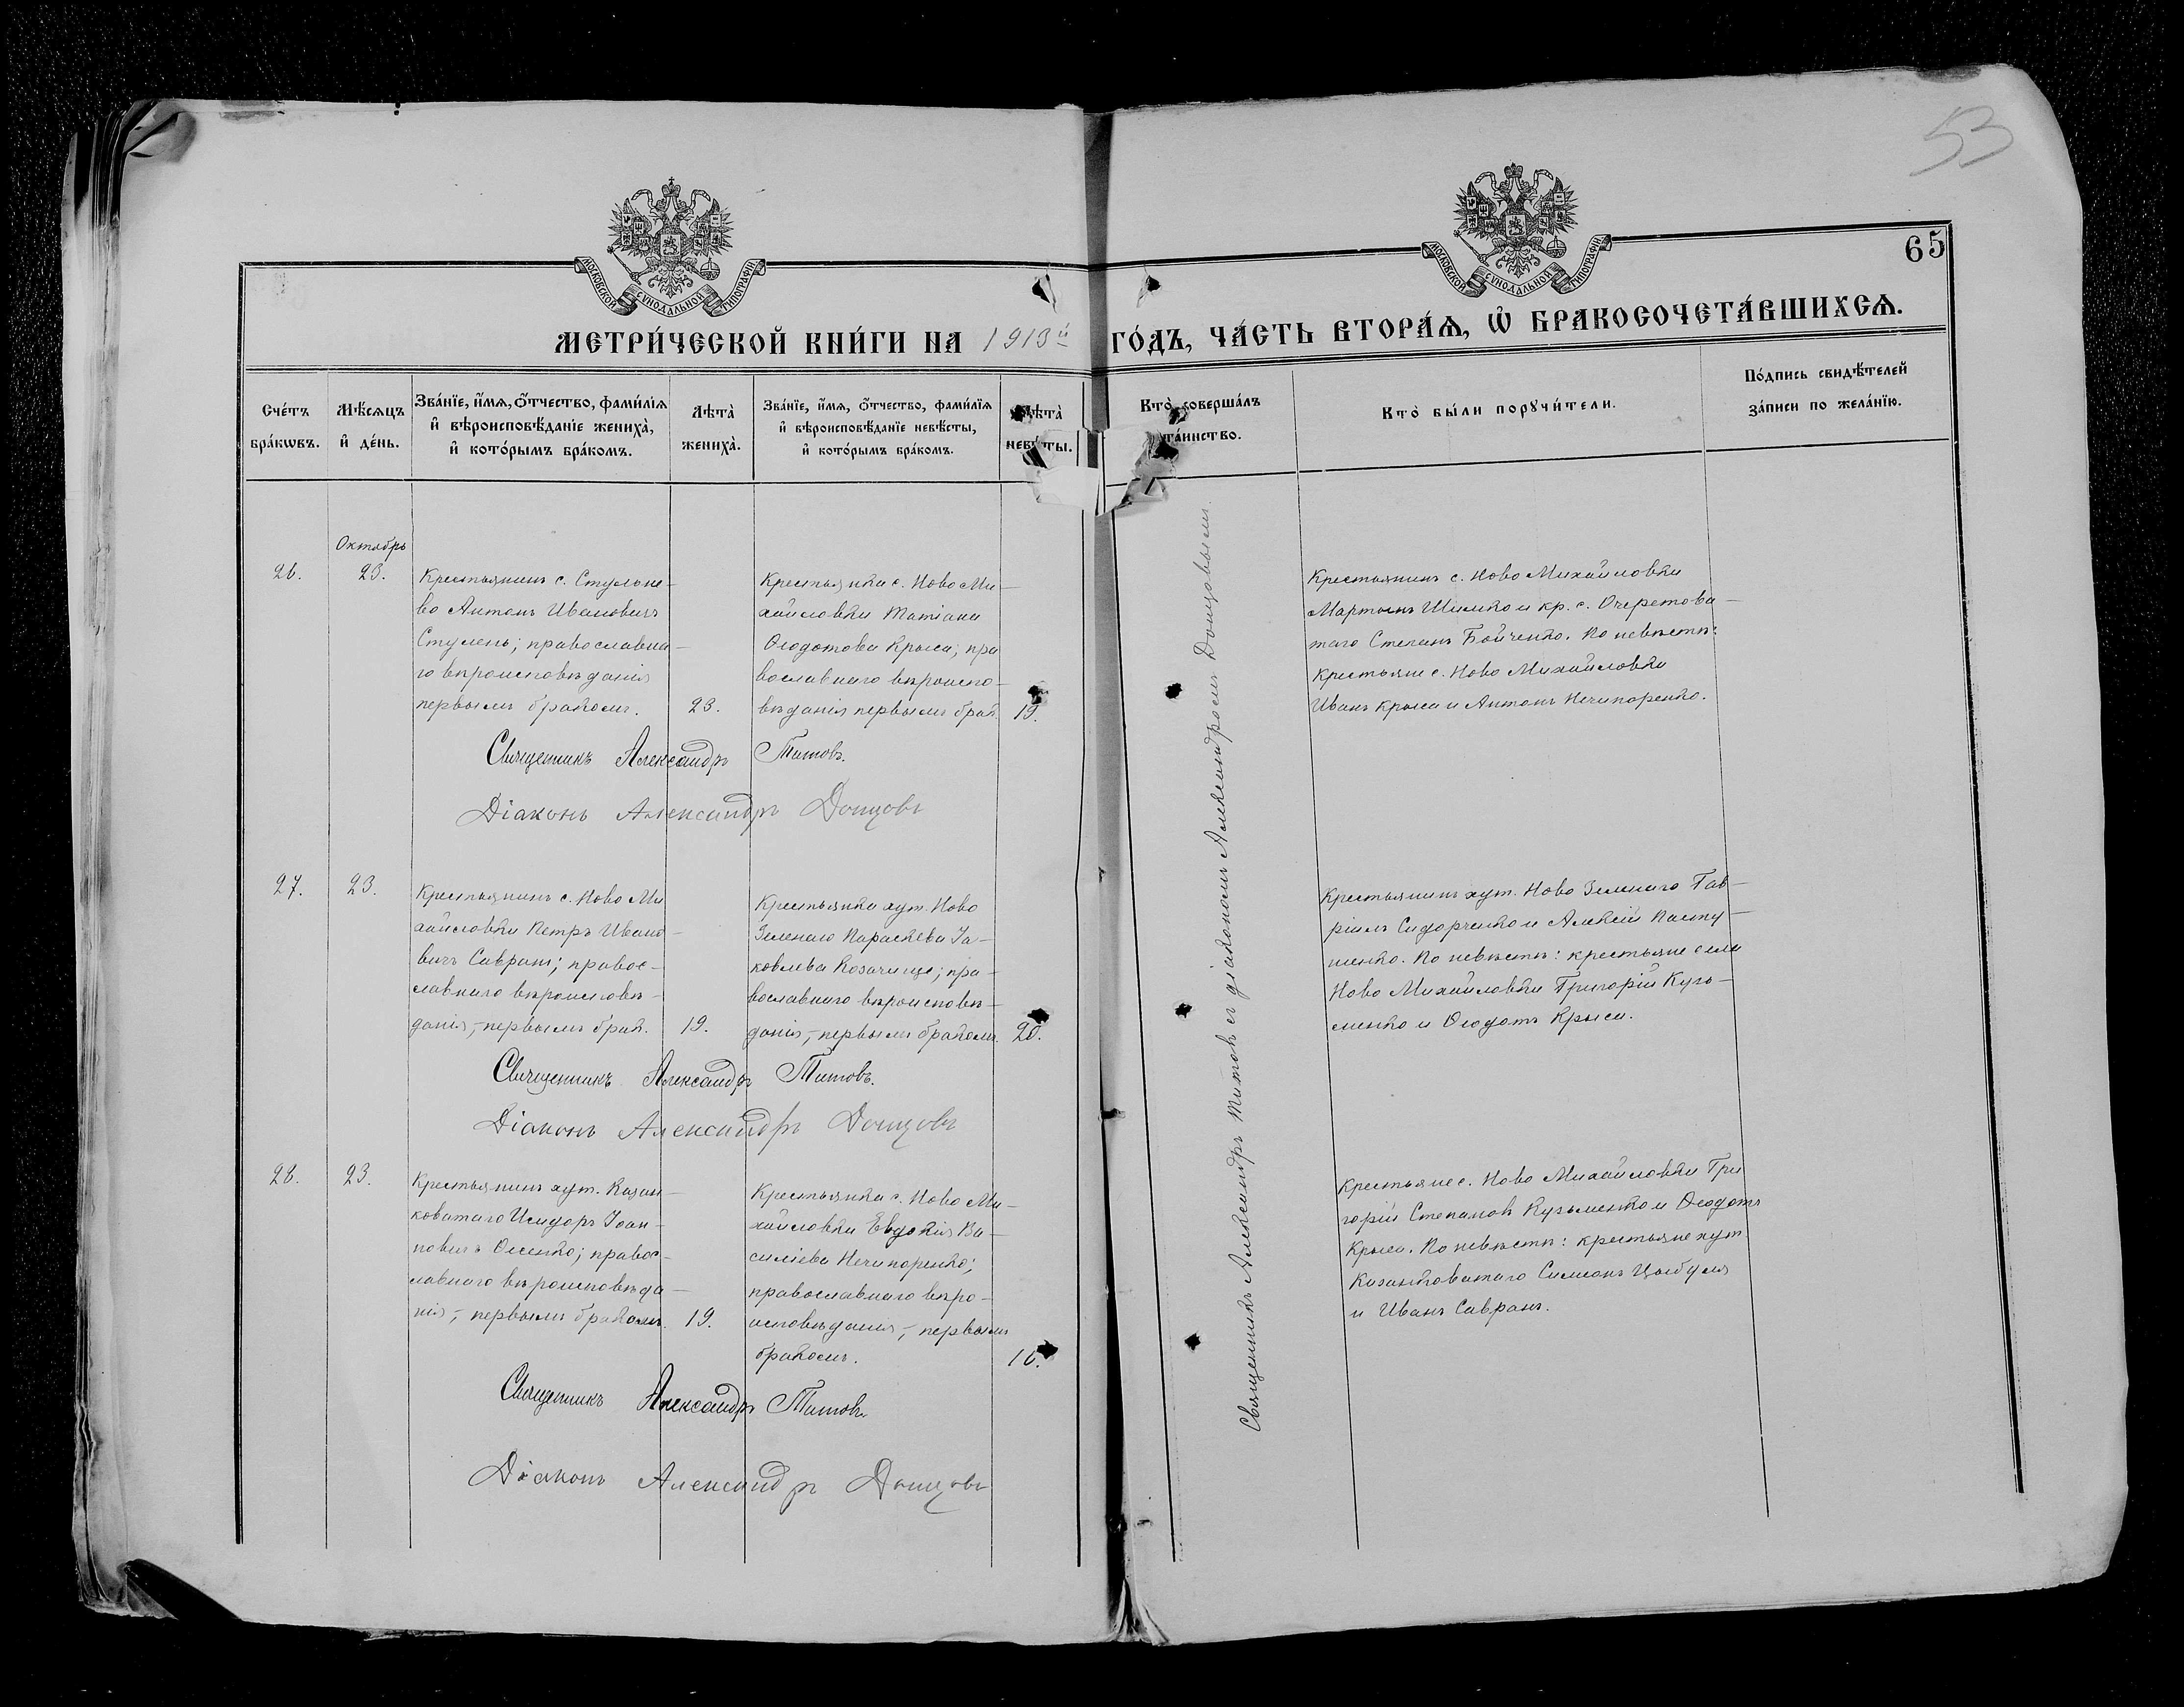 53
65
МОСКОВСКОЙ СѴНОДАЛЬНОЙ ТИПОГРАФІИ
МОСКОВСКОЙ СѴНОДАЛЬНОЙ ТИПОГРАФІИ
МЕТРИ́ЧЕСКОЙ КНИ́ГИ НА 1913й ГО́ДЪ, ЧА́СТЬ ВТОРА́Ѧ, Ѡ БРАКОСОЧЕТА́ВШИХСѦ.
Сче́тъ бра́кѡвъ.
Мѣ́сяцъ и де́нь.
Зва́нїе, и́мя, о́тчество, фами́лїя
и вѣроисповѣ́данїе жениха̀,
и кото́рымъ бра́комъ.
Лѣта̀ жениха̀.
Зва́нїе, и́мя, о́тчество, фами́лїя
и вѣроисповѣ́данїе невѣ́сты,
и кото́рымъ бра́комъ.
Лѣта̀ невѣсты.
Кто̀ соверша́лъ таинство.
Кто̀ бы́ли порꙋчи́тели.
По́дпись свидѣ́телей
за́писи по жела́нїю.
Октябрь
26.
23.
Крестьянинъ с. Стульне-
во Антонъ Ивановичъ
Стулень; православна-
го вѣроисповѣданія
первымъ бракомъ.
23.
Крестьянка с. Ново Ми-
хайловки Татіана
Ѳеодотова Крыса; пра
вославнаго вѣроиспо-
вѣданія первымъ брак.
19.
Крестьянинъ с. Ново Михайловки
Мартынъ Шилко и кр. с. Очеретова-
таго Степанъ Бойченко. По невѣстѣ:
крестьяне с. Ново Михайловки
Иванъ Крыса и Антонъ Нечипоренко.
Священникъ Александръ Титовъ.
Діаконъ Александръ Донцовъ
27.
23.
Крестьянинъ с. Ново Ми
хайловки Петръ Ивано-
вичъ Савранъ; правос-
лавнаго вѣроисповѣ-
данія,-первымъ брак.
19.
Крестьянка хут. Ново
Зеленаго Параскева Іа-
ковлева Козачище; пра-
вославнаго вѣроисповѣ-
данія,-первымъ бракомъ.
20.
Крестьянинъ хут. Ново Зеленаго Гав-
ріилъ Сидорченко и Алексій Пасту-
шенко. По невѣстѣ: крестьяне села
Ново Михайловки Григорій Кузь-
менко и Ѳеодотъ Крыса.
Священникъ Александръ Титовъ.
Діаконъ Александръ Донцовъ
28.
23.
Крестьянинъ хут. Казан-
коватаго Исидоръ Іоан-
новичъ; правос-
лавнаго вѣроисповѣда-
нія,-первымъ бракомъ.
19.
Крестьянка с. Ново Ми-
хайловки Евдокія Ва-
силіева Нечипоренко;
православнаго вѣро-
исповѣданія,-первымъ
бракомъ.
16.
Крестьяне с. Ново Михайловки Гри
горій Степановъ Кузьменко и Ѳеодотъ
Крыса. По невѣстѣ: крестьяне хут
Казанковатаго Симеонъ Цыбуля
и Иванъ Савранъ.
Священникъ Александръ Титовъ.
Діаконъ Александръ Донцовъ
Священникъ Александръ Титовъ съ діакономъ Александромъ Донцовымъ